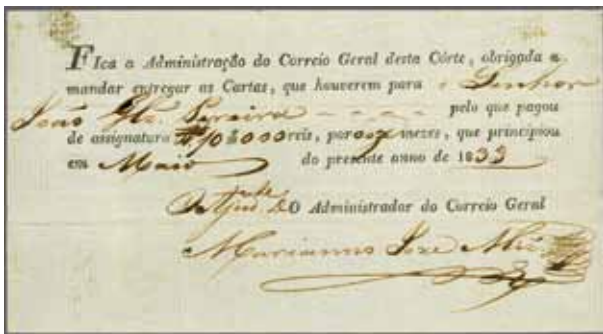 FIca a Administração do Correio Geral desta Côrte, obrigada a
mandar entregar as Cartas, que houverem para o Senhor
João Pereira pelo que pagou
de assignatura 10$000 reis, por mezes, que principiou
em Maio do presente anno de 1833
O Administrador do Correio Geral
Marianno Joze